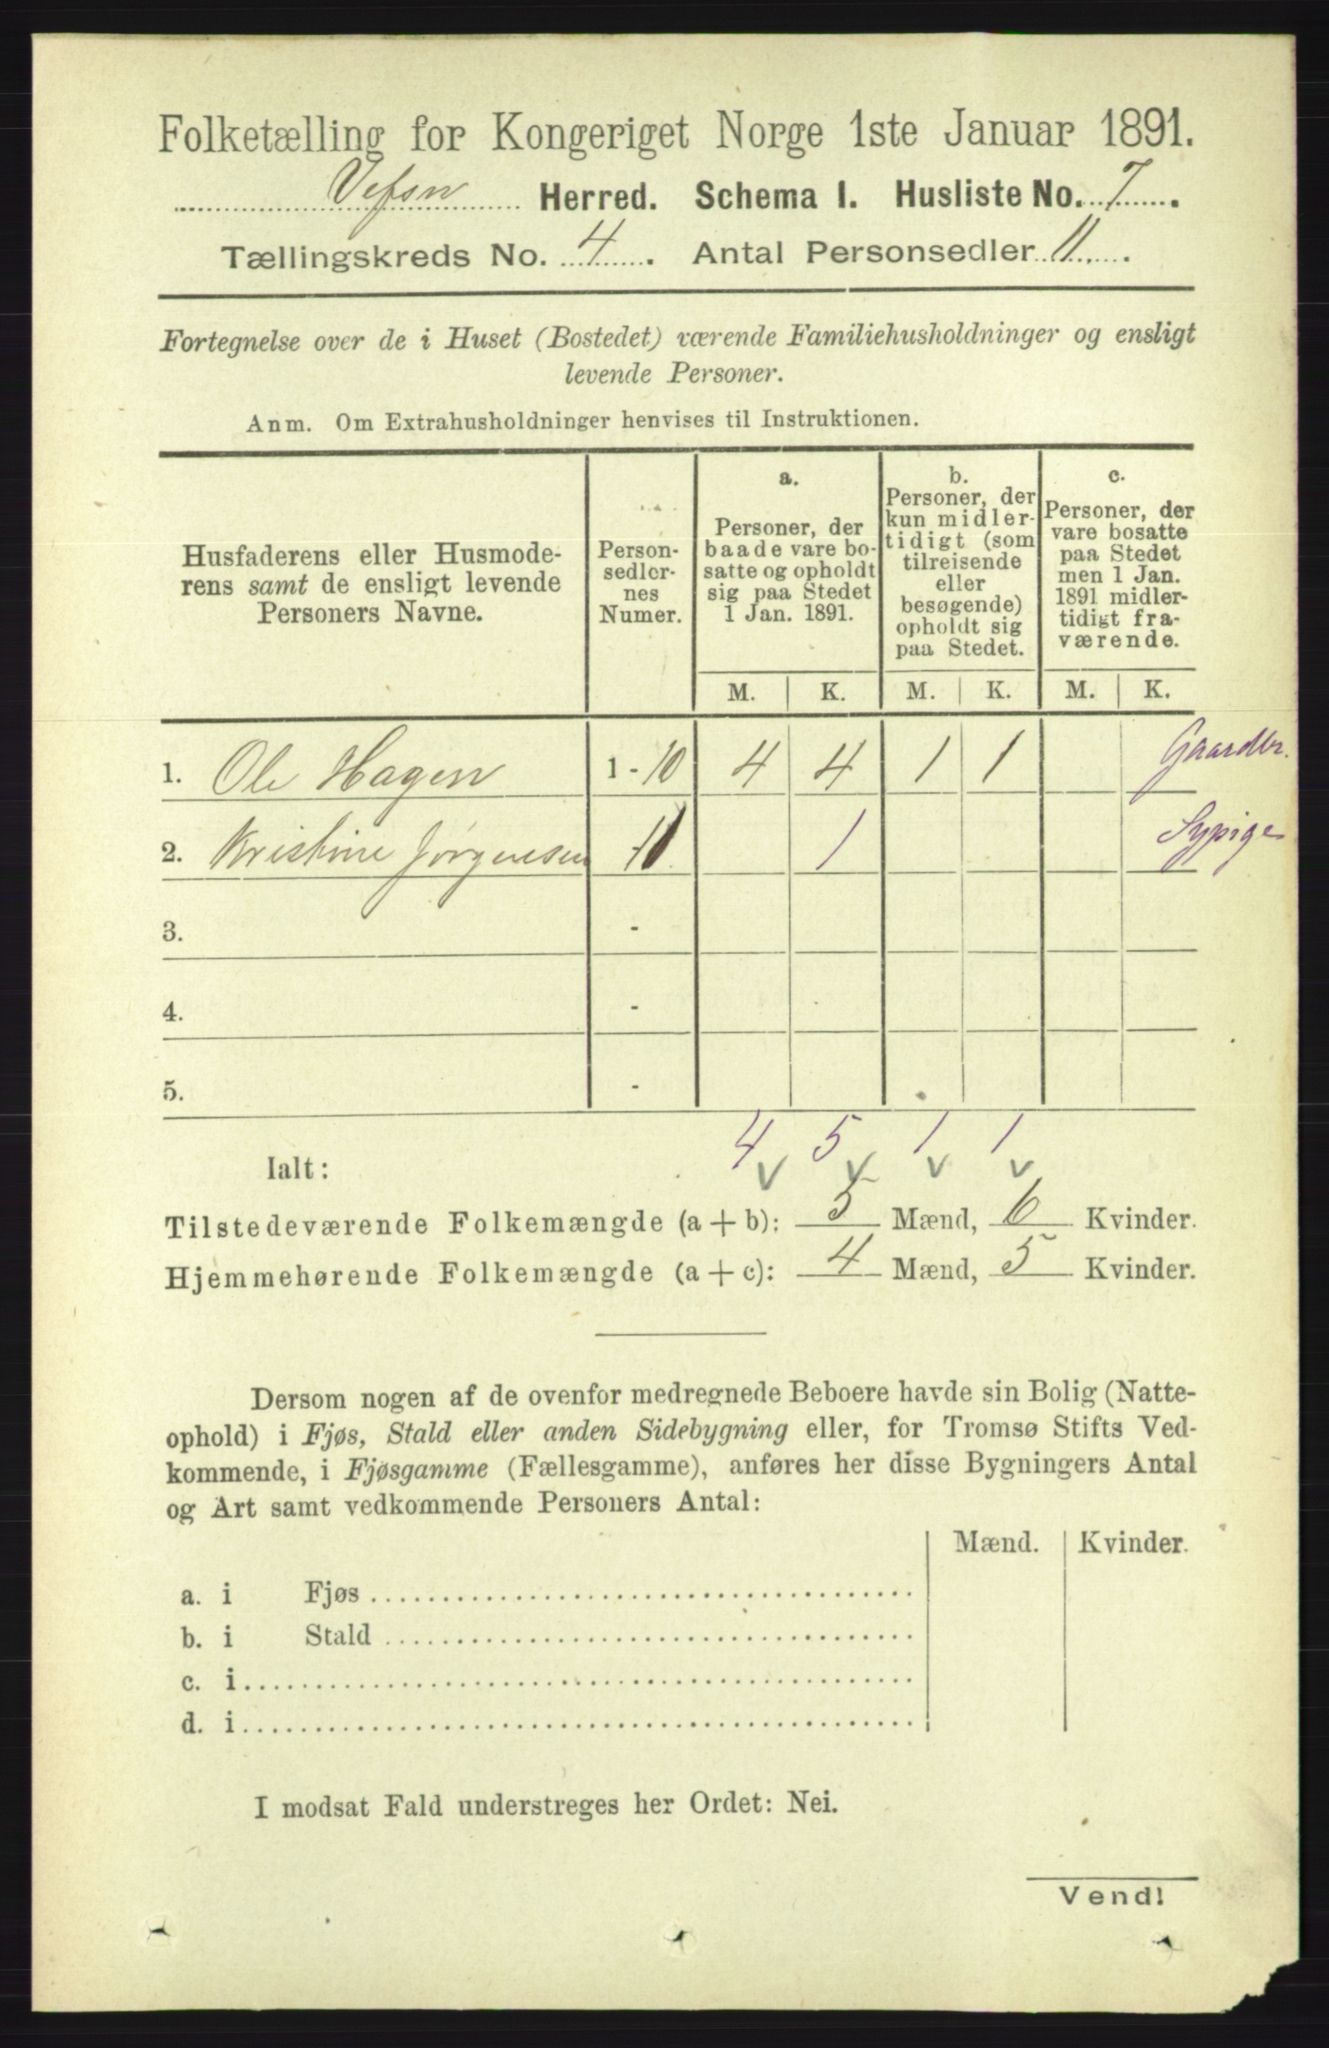 Folketælling for Kongeriget Norge 1ste Januar 1891.
Vefsn Herred. Schema I. Husliste No. 7.
Tællingskreds No. 4. Antal Personsedler 11.
Fortegnelse over de i Huset (Bostedet) værende Familiehusholdninger og ensligt
levende Personer.
Anm. Om Extrahusholdninger henvises til Instruktionen.
Husfaderens eller Husmode-
rens samt de ensligt levende
Personers Navne.
Person-
sedler-
nes
Numer.
a.
Personer, der
baade vare bo-
satte og opholdt
sig paa Stedet
1 Jan. 1891.
b.
Personer, der
kun midler-
tidigt (som
tilreisende
eller
besøgende)
opholdt sig
paa Stedet.
c.
Personer, der
vare bosatte
paa Stedet
men 1 Jan.
1891 midler-
tidigt fra-
værende.
M. K. M. K. M. K.
1. Ole Hagen 1 - 10 4 4 1 1 Gaardbr.
2. Kristine Jørgensen 11 1 Sypige
3. -
4. -
5. -
4 5 1 1
Ialt: v v v v
Tilstedeværende Folkemængde (a + b): 5 Mænd, 6 Kvinder.
Hjemmehørende Folkemængde (a + c): 4 Mænd, 5 Kvinder.
Dersom nogen af de ovenfor medregnede Beboere havde sin Bolig (Natte-
ophold) i Fjøs, Stald eller anden Sidebygning eller, for Tromsø Stifts Ved-
kommende, i Fjøsgamme (Fællesgamme), anføres her disse Bygningers Antal
og Art samt vedkommende Personers Antal:
Mænd. Kvinder.
a. i Fjøs
b. i Stald
c. i
d. i
I modsat Fald understreges her Ordet: Nei.
Vend!